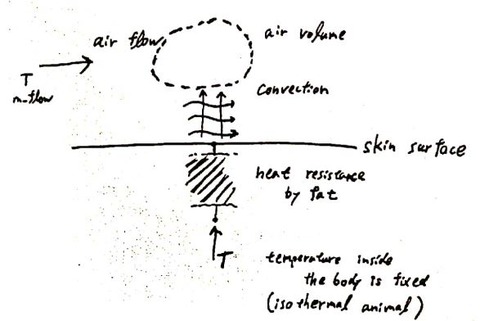 air flow
air volume
T
m-flow
convection
skin surface
heat resistance
by fat
T
temperature inside
the body is fixed
(isothermal animal)